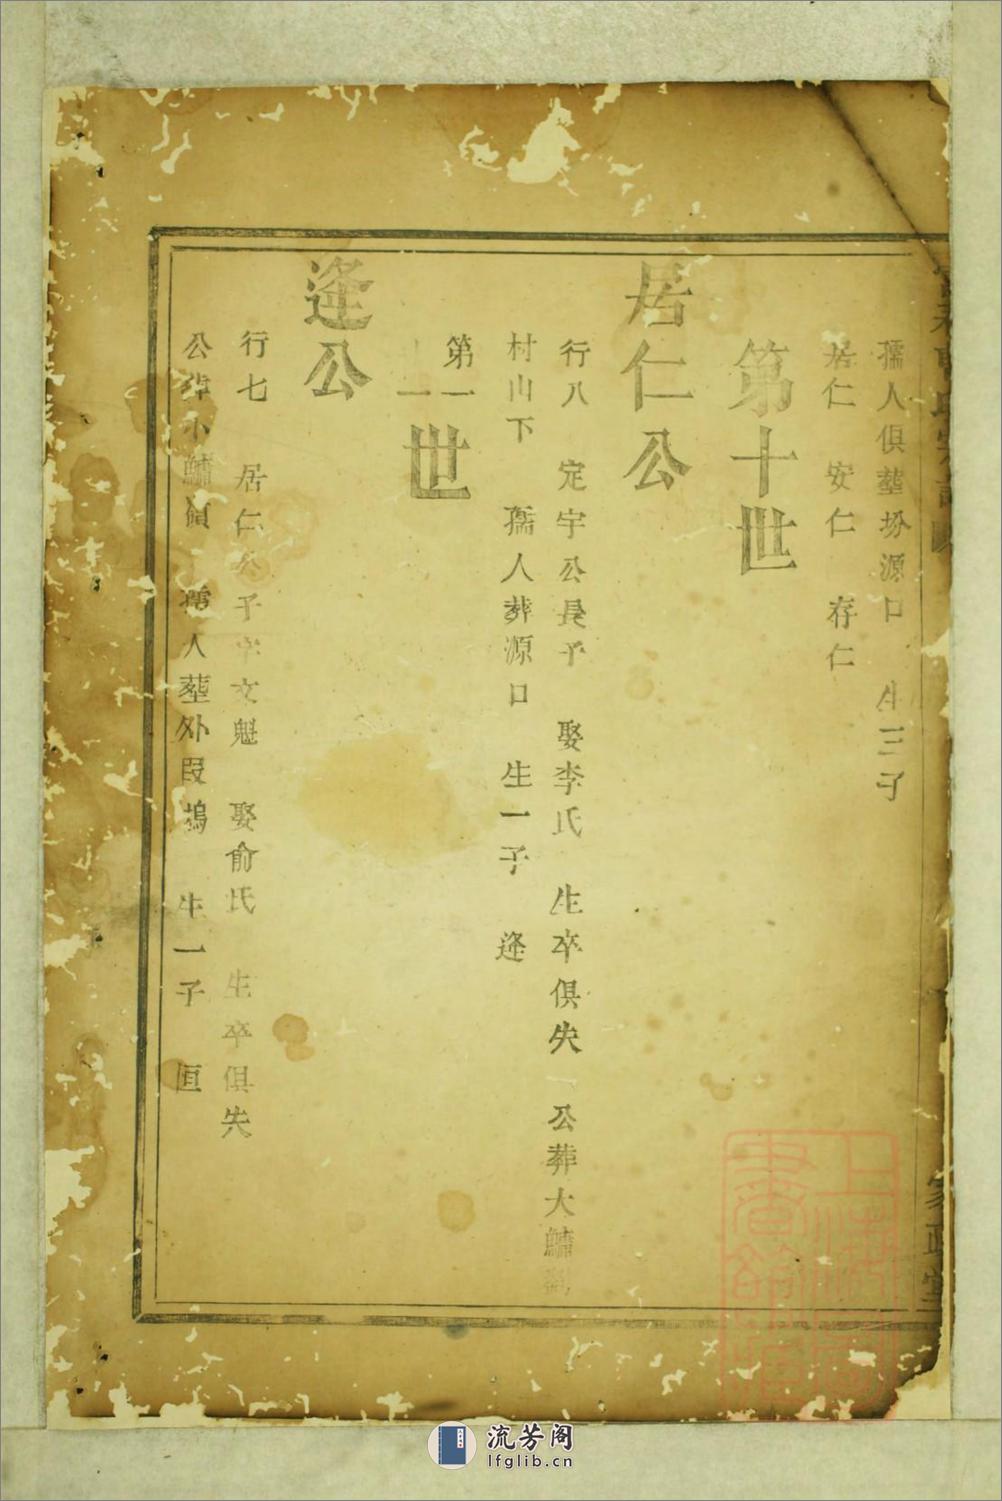 孺人俱塟坋源口 生三子
居仁 安仁 存仁
第十世
居仁公
行八 定宇公長子 娶李氏 生卒俱失 公葬大鱅
村山下 孺人葬源口 生一子 逢
第一
十一世
逢公
行七 居仁公子字文魁 娶俞氏 生卒俱失
公葬小鱅嶺 孺人塟外叚塢 生一子 恒
家政堂
上海圖書館藏
流芳阁
lfglib.cn